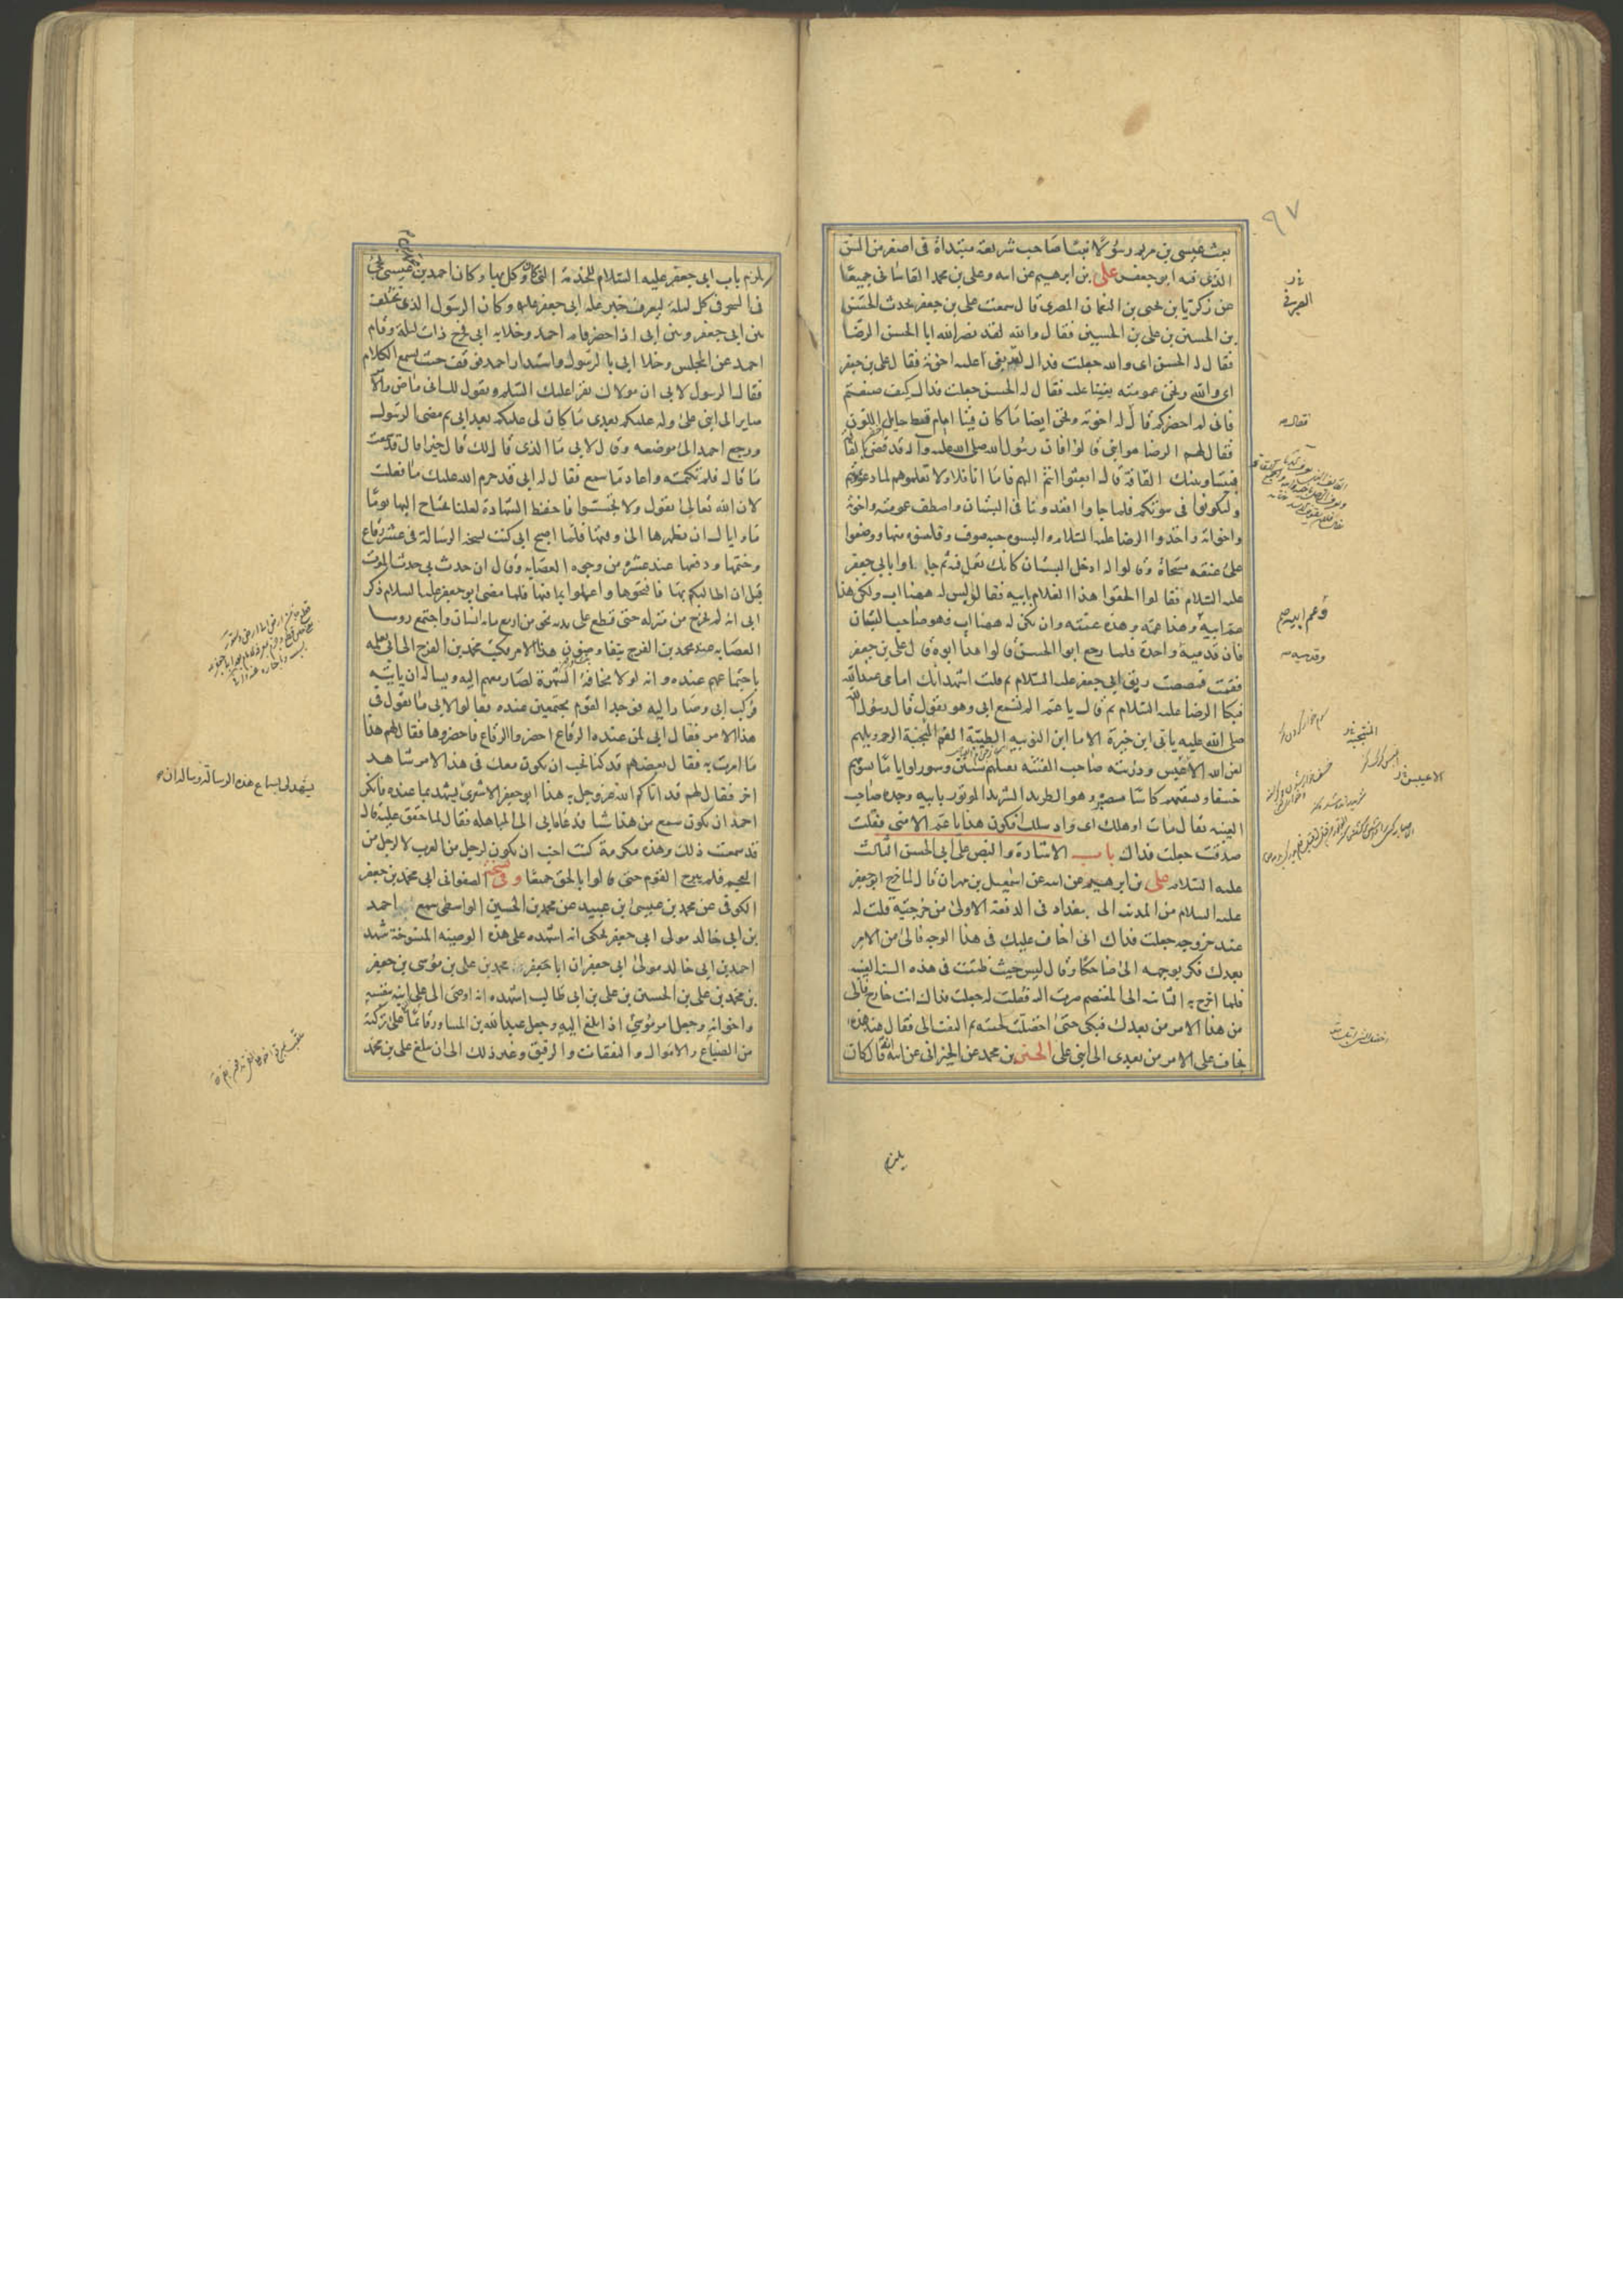 ٩٧
بعث عيسى بن مريم رسولا نبيا صاحب شريعة مبتداة فى اصغر من السن
الذى فيه ابو جعفر على بن ابرهيم عن ابيه وعلى بن محمد القاسانى جميعا
عن زكريا بن يحيى بن النعمان المصرى قال سمعت على بن جعفر يحدث الحسن
بن الحسين بن على بن الحسين فقال والله لقد نصر الله ابا الحسن الرضا
فقال له الحسن اى والله جعلت فداك لقد بغى عليه اخوته فقال على بن جعفر
اى والله ونحن عمومته بغينا عليه فقال له الحسن جعلت فداك كيف صنعتم
فانى لم احضركم قال له اخوته ونحن ايضا ما كان فينا امام قط حايل اللون
فقال لهم الرضا هو ابنى قالوا فان رسول الله صلى الله عليه واله قد قضى بالقافة
فبيننا وبينك القافة قال ابعثوا انتم اليهم فاما انا فلا ولا تعلموهم لما دعوتهم
وليكونوا فى بيوتكم فلما جاوا اقعدونا فى البستان واصطف عمومته واخوته
واخواته واخذوا الرضا عليه السلام والبسوه جبة صوف وقلنسوة منها ووضعوا
على عنقه مسحاة وقالوا له ادخل البستان كانك تعمل فيه ثم جاوا بابى جعفر
عليه السلام فقالوا الحقوا هذا الغلام بابيه فقالوا ليس له ههنا اب ولكن هذا
عم ابيه وهذا عمه وهذه عمته وان يكن له ههنا اب فهو صاحب البستان
فان قدميه واحدة فلما رجع ابو الحسن قالوا هذا ابوه قال على بن جعفر
فقمت فمصصت ريق ابى جعفر عليه السلام ثم قلت اشهد انك امامى عند الله
فبكا الرضا عليه السلام ثم قال يا عم الم تسمع ابى وهو يقول قال رسول الله
صلى الله عليه يابى ابن خيرة الاما ابن النوبية الطيبة الفم المنتجبة الرحم ويلهم
لعن الله الاعيبس وذريته صاحب الفتنة يقتلهم سنين وشهورا واياما يسومهم
خسفا ويسقيهم كاسا مصبرة وهو الطريد الشريد الموتور بابيه وجده صاحب
الغيبة يقال مات او هلك اى واد سلك افيكون هذا يا عم الا منى فقلت
صدقت جعلت فداك باب الاشارة والنص على ابى الحسن الثالث
عليه السلام على بن ابرهيم عن ابيه عن اسمعيل بن مهران قال لما خرج ابو جعفر
عليه السلام من المدينة الى بغداد فى الدفعة الاولى من خرجتيه قلت له
عند خروجه جعلت فداك انى اخاف عليك فى هذا الوجه فالى من الامر
بعدك فكر بوجهه الى ضاحكا وقال ليس حيث ظننت فى هذه السنة
فلما اخرج به الثانية الى المعتصم صرت اليه فقلت له جعلت فداك انت خارج فالى
من هذا الامر من بعدك فبكى حتى اخضلت لحيته ثم التفت الى فقال عند هذه
يخاف على الامر من بعدى الى ابنى على الحسين بن محمد عن الخيرانى عن ابيه انه قال كان
يلزم
العرنى
فقال
وعم ابيه
وقدميه
المنتجبة
الاعيبس
يلزم باب ابى جعفر عليه السلام للخدمة التى كان وكل بها وكان احمد بن محمد بن عيسى يجئ
فى السحر فى كل ليلة ليعرف خبر علة ابى جعفر وكان الرسول الذى يختلف
بين ابى جعفر وبين ابى اذا حضر قام احمد وخلا به ابى فخرج ذات ليلة وقام
احمد عن المجلس وخلا ابى بالرسول واستدار احمد فوقف حيث يسمع الكلام
فقال الرسول لابى ان مولاك يقرا عليك السلم ويقول لك انى ماض والامر
صاير الى ابنى على وله عليكم بعدى ما كان لى عليكم بعد ابى ثم مضى الرسول
ورجع احمد الى موضعه وقال لابى ما الذى قال لك قال خيرا قال قد سمعت
ما قال فلم تكتمه واعاد ما سمع فقال له ابى قد حرم الله عليك ما فعلت
لان الله تعالى يقول ولا تجسسوا فاحفظ الشهادة لعلنا نحتاج اليها يوما
ما واياك ان تظهرها الى وقتها فلما اصبح ابى كتب نسخة الرسالة فى عشر رقاع
وختمها ودفعها عند عشرة من وجوه العصابة وقال ان حدث بى حدث الموت
قبل ان اطالبكم بها فافتحوها واعملوا بما فيها فلما مضى ابو جعفر عليه السلام ذكر
ابى انه لم يخرج من منزله حتى قطع على يديه نحو من اربع مايه انسان واجتمع روسا
العصابه عند محمد بن الفرج يتفاوضون هذا الامر فكتب محمد بن الفرج الى ابى يعلمه
باجتماعهم عنده وانه لولا مخافة الشهرة لصار معهم اليه ويساله ان ياتيه
فركب ابى وصار اليه فوجد القوم مجتمعين عنده فقالوا لابى ما تقول فى
هذا الامر فقال ابى لمن عنده الرقاع احضروا الرقاع فاحضروها فقال لهم هذا
ما امرت به فقال بعضهم قد كنا نحب ان يكون معك فى هذا الامر شاهد
اخر فقال لهم قد اتاكم الله عز وجل به هذا ابو جعفر الاشعرى يشهد بما عنده فانكر
احمد ان يكون سمع من هذا شيا فدعاه ابى الى المباهلة فقال لما حقق عليه قال
قد سمعت ذلك وهذه مكرمة كنت احب ان يكون لرجل من العرب لا لرجل من
العجم فلم يبرح القوم حتى قالوا بالحق جميعا وفى نسخة الصفوانى ابى محمد بن جعفر
الكوفى عن محمد بن عيسى بن عبيد عن محمد بن الحسين الواسطى سمع احمد
بن ابى خالد مولى ابى جعفر يحكى انه اشهده على هذه الوصية المنسوخة شهد
احمد بن ابى خالد مولى ابى جعفر ان ابا جعفر محمد بن على بن موسى بن جعفر
بن محمد بن على بن الحسين بن على بن ابى طالب اشهده انه اوصى الى على ابنه بنفسه
واخواته وجعل امر موسى اذا بلغ اليه وجعل عبد الله بن المساور قائما على تركته
من الضياع والاموال والنفقات والرقيق وغير ذلك الى ان يبلغ على بن محمد
يشهد لى بسماع هذه الرسالة